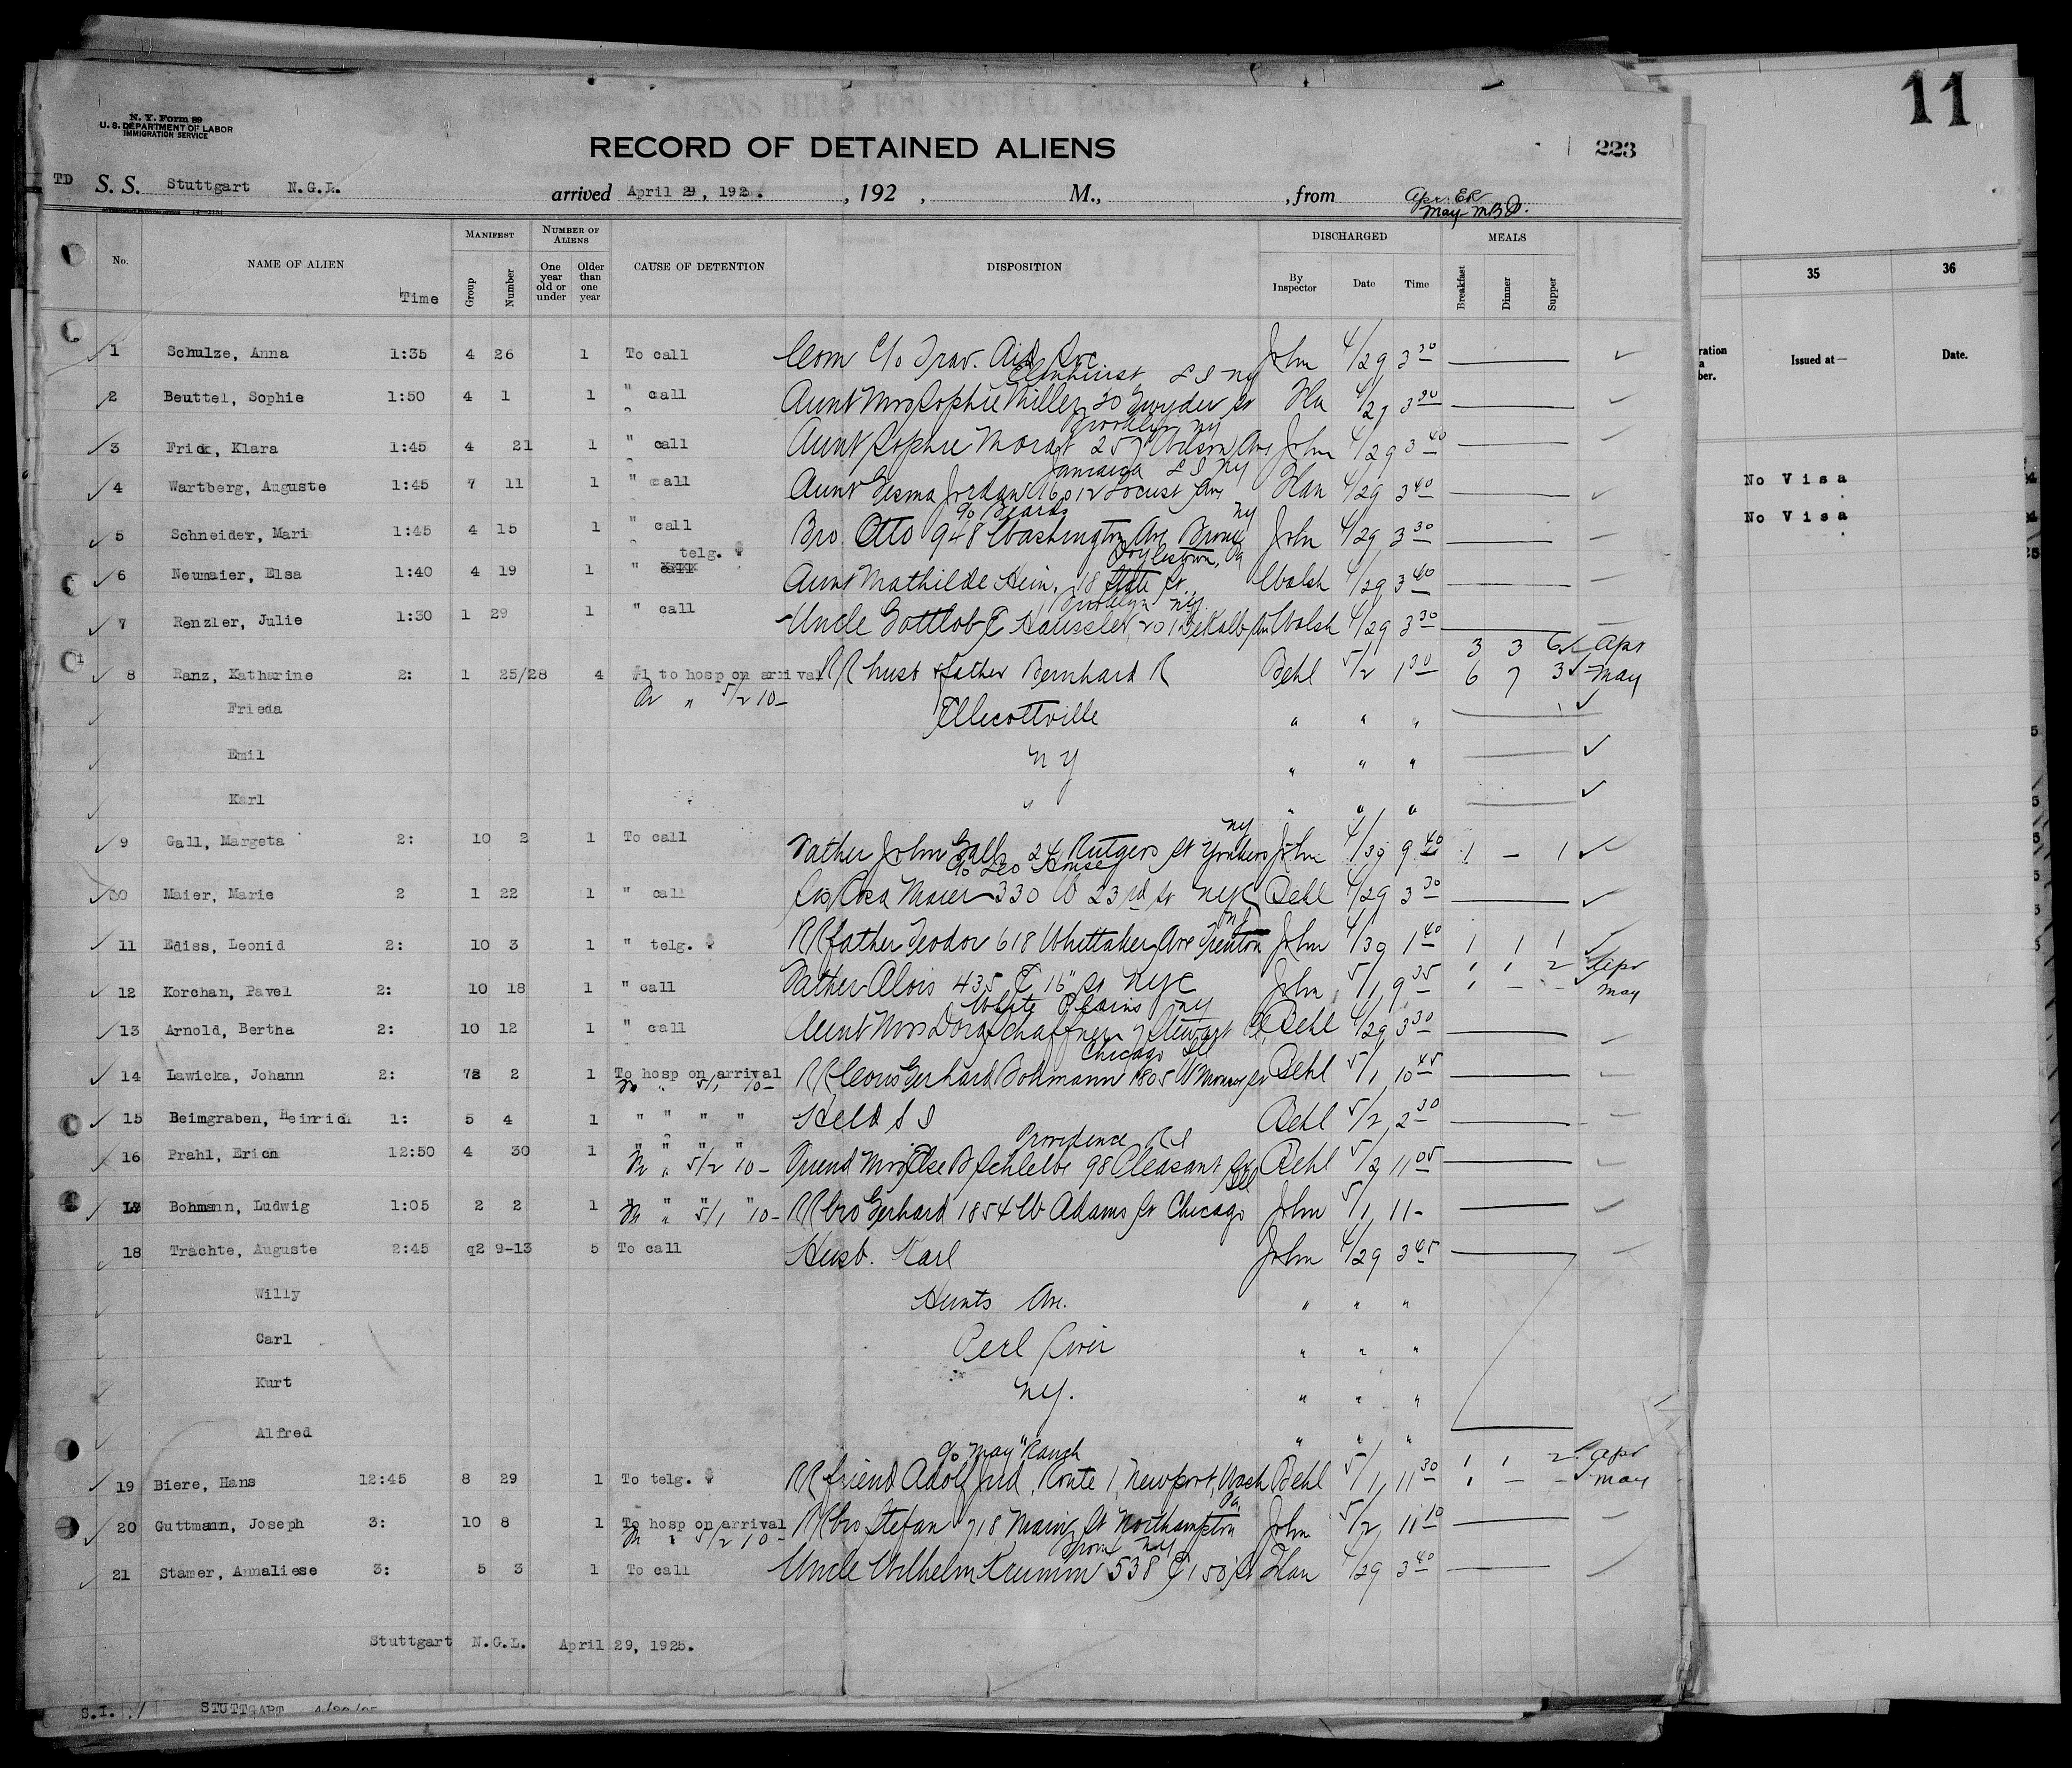 11
N. Y. Form 89
U. S. DEPARTMENT OF LABOR
IMMIGRATION SERVICE
RECORD OF DETAINED ALIENS
223
TD S. S. Stuttgart N.G.L. arrived April 29, 192 , 192 , M., , from Apr. ER
May MBD.
No. NAME OF ALIEN Time MANIFEST Group Number NUMBER OF ALIENS One year old or under Older than one year CAUSE OF DETENTION DISPOSITION DISCHARGED By Inspector Date Time MEALS Breakfast Dinner Supper
1 Schulze, Anna 1:35 4 26 1 To call Com C/o Trav. Aid Soc John 4/29 3 30
Elmhurst L I NY
2 Beuttel, Sophie 1:50 4 1 1 " call Aunt Mrs Sophie Miller 30 Snyder St 4/29 3 30
Brooklyn NY
3 Frick, Klara 1:45 4 21 1 " call Aunt Sophie Morast 257 Wilson Ave John 4/29 3 40
Jamaica L I NY
4 Wartberg, Auguste 1:45 7 11 1 " call Aunt Gesma Jordan 16012 Locust Ave Han 4/29 3 40
c/o Beards NY
5 Schneider, Mari 1:45 4 15 1 " call Bro. Otto 948 Washington Ave Bronx John 4/29 3 30
telg. Doylestown, Pa
6 Neumaier, Elsa 1:40 4 19 1 " Aunt Mathilde Hein, 18 State St. Walsh 4/29 3 40
Brooklyn NY.
7 Renzler, Julie 1:30 1 29 1 " call Uncle Gottlob E Haussler, 201 DeKalb Av Walsh 4/29 3 30
3 3 6 Apr
8 Ranz, Katharine 2: 1 25/28 4 #1 to hosp on arrival RR husb & father Bernhard R Behl 5/2 1 30 6 7 3 May
" 5/2 10-
Frieda Ellecottville " " "
Emil N Y " " "
Karl " " " "
NY
9 Gall, Margeta 2: 10 2 1 To call Father John Gall 24 Rutgers St Yonkers John 4/30 9 40 1 - 1
c/o Leo House
10 Maier, Marie 2 1 22 1 " call Sis Rosa Maier 330 W 23rd St NYC Behl 4/29 3 30
NJ
11 Ediss, Leonid 2: 10 3 1 " telg. RR father Teodor 618 Whittaker Ave Trenton John 4/30 1 40 1 1 1
1 1 2 Apr
12 Korchan, Pavel 2: 10 18 1 " call Father Alois 435 E 16" St NYC John 5/1 9 35 1 - - May
White Plains NY
13 Arnold, Bertha 2: 10 12 1 " call Aunt Mrs Dora Schaffner 7 Stewart Pl. Behl 4/29 3 30
Chicago Ill
14 Lawicka, Johann 2: 78 2 1 To hosp on arrival RR Cous Gerhard Bohmann 1805 W Monroe St Behl 5/1 10 45
" 5/1 10-
15 Beimgraben, Heinrich 1: 5 4 1 " " " " Held S I Behl 5/2 2 30
Providence R I
16 Prahl, Erich 12:50 4 30 1 " " " " Friend Mrs Else B Schlelbe 98 Pleasant St Behl 5/2 11 05
" 5/2 10-
Ill
17 Bohmann, Ludwig 1:05 2 2 1 " " " " RR bro Gerhard 1854 W Adams St Chicago John 5/1 11-
" 5/1 10-
18 Trachte, Auguste 2:45 q2 9-13 5 To call Husb. Karl John 4/29 3 45
Willy Hunts Ave. " " "
Carl Perl River " " "
Kurt NY. " " "
Alfred " " "
c/o "May" Ranch 1 1 2 Apr
19 Biere, Hans 12:45 8 29 1 To telg. RR friend Adolf Jud, Route 1, Newport, Wash Behl 5/1 11 30 1 - - May
Pa.
20 Guttmann, Joseph 3: 10 8 1 To hosp on arrival RR bro Stefan 718 Main St Northampton John 5/2 11 10
" 5/2 10-
Bronx NY
21 Stamer, Annaliese 3: 5 3 1 To call Uncle Wilhelm Krumm 538 E 150 St Han 4/29 3 40
Stuttgart N.G.L. April 29, 1925.
S.I. STUTTGART
35 36
Issued at— Date.
No Visa
No Visa